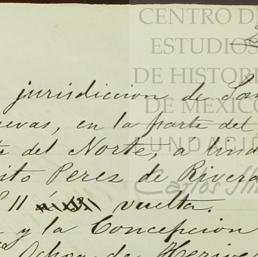 CENTRO DE
ESTUDIOS
DE HISTOR
DE MÉXICO
FUNDACIÓN
Carlos Slim
jurisdiccion de San
uevas, en la parte del
te del Norte, a lind
to Perez de Rivera
11 vuelta.
y la Concepcion
Ochoa de